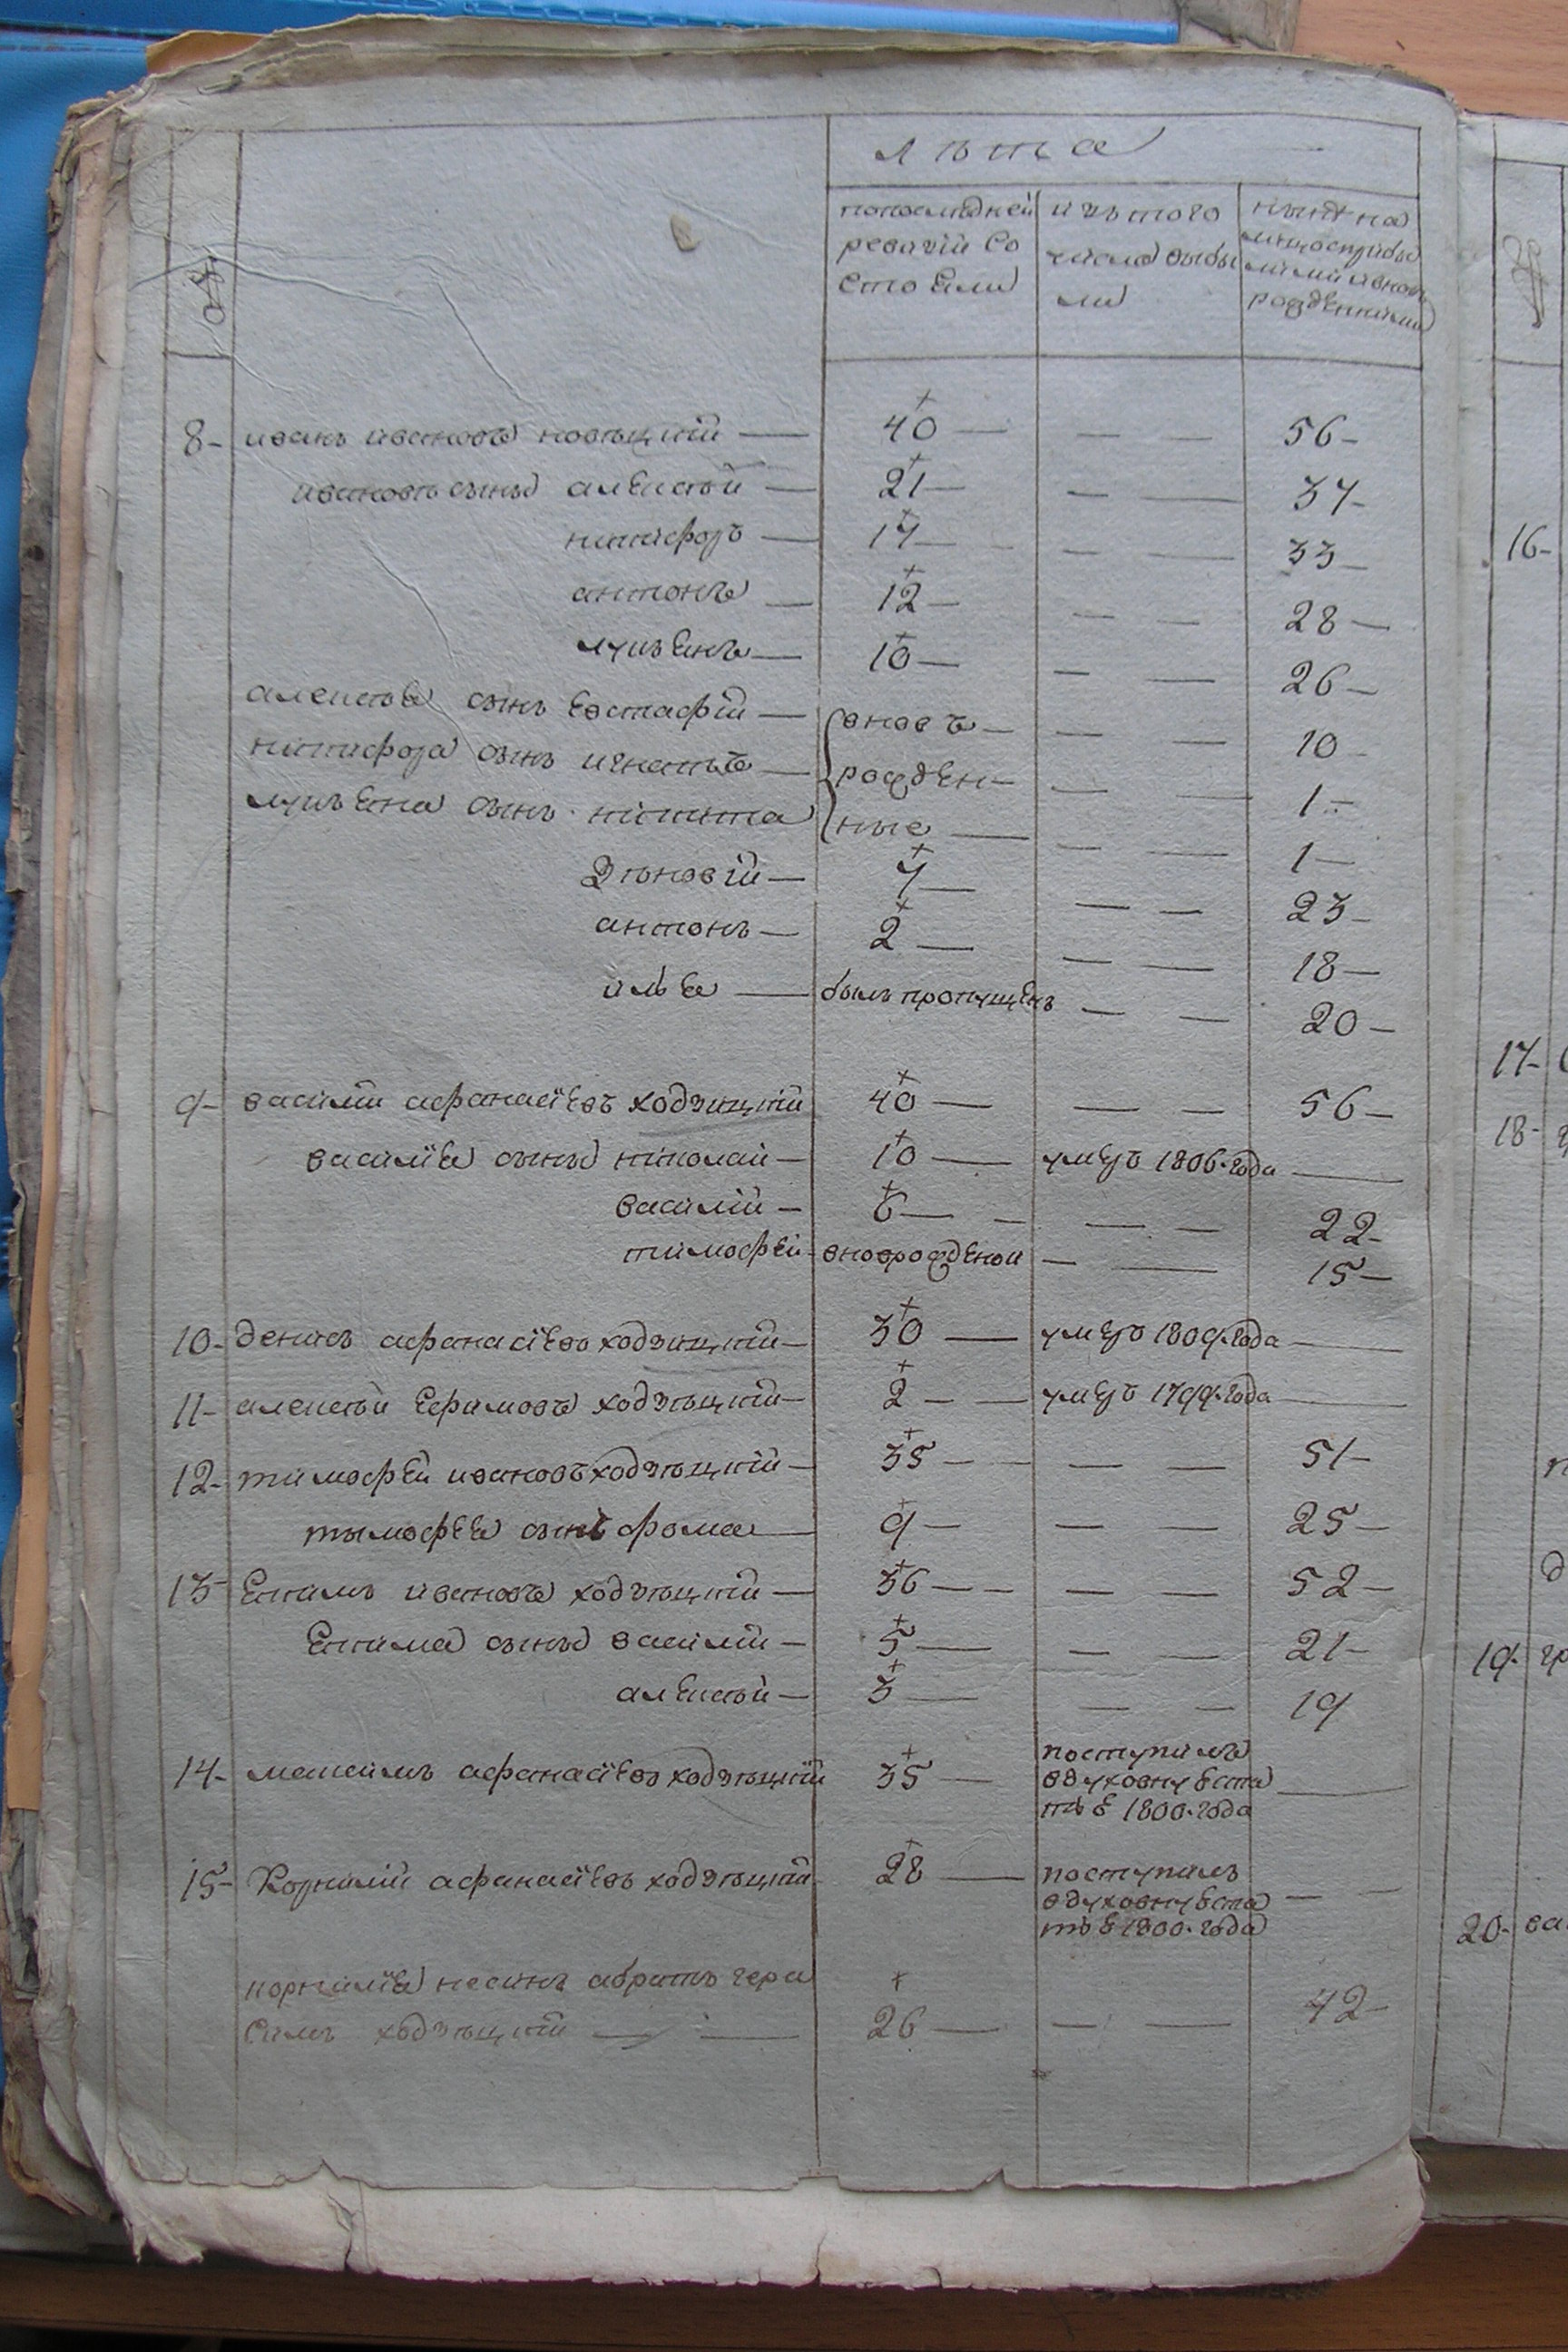 лѣта
№
попослѣдней
ревизіи Со
стоЕли
изъ того
числа выбы
ли
нынѣ на
лицо спрібы
лими ивновь
рожденними
8- иванъ ивановъ новѣцкій — 40 — — — 56-
ивановы сыны алЕксѣй — 21 — — — 37-
никифоръ — 17 — — — 33-
антонъ — 12 — — — 28-
лукъЕнъ — 10 — — — 26-
алексѣя сынъ Евстафій — вновь — — — 10-
никифора сынъ игнатъ — рождЕн- — — 1-
лукъЕна сынъ никита ные — — — 1-
Зѣновій — 7 — — — 23-
антонъ — 2 — — — 18-
илья — былъ пропущЕнъ — — 20-
9- василий афанасіЕвъ ходзицкій 40 — — — 56-
василіЕа сыны николай — 10 — умЕръ 1806. года —
василій — 6 — — — 22-
тимофЕй - вноврождЕной — — 15-
10- денисъ афанасіЕвъ ходзицкій — 30 — умЕръ 1809. года —
11- алексѣй Ефимовъ ходзѣцкій — 2 — умЕръ 1799. года —
12- тимофЕй ивановъ ходзѣцкій — 35 — — — 51-
тымофЕЕа сынъ фома — 9 — — — 25-
13- Екимъ ивановъ ходзѣцкій — 36 — — — 52-
Екима сыны василій — 5 — — — 21-
алЕксѣй — 3 — — — 19
14- максимъ афанасіЕвъ ходзѣцкій 35 — поступилъ
вдуховну Еста
тьЕ 1800. года —
15- Корнилій афанасіЕвъ ходзѣцкій 28 — поступилъ
вдуховну Еста
тьЕ 1800. года — —
корниліЕа несынъ абратъ гера
Симъ ходзѣцкій — 26 — — — 42-
16-
17-
18-
19- гр
20- ва